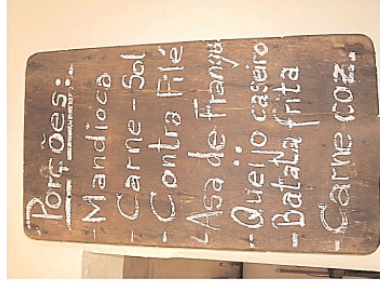 Porções:
- Mandioca
- Carne-Sol
- Contra Filé
- Asa de Frangu
- Queijo caseiro
- Batata frita
- Carne coz.